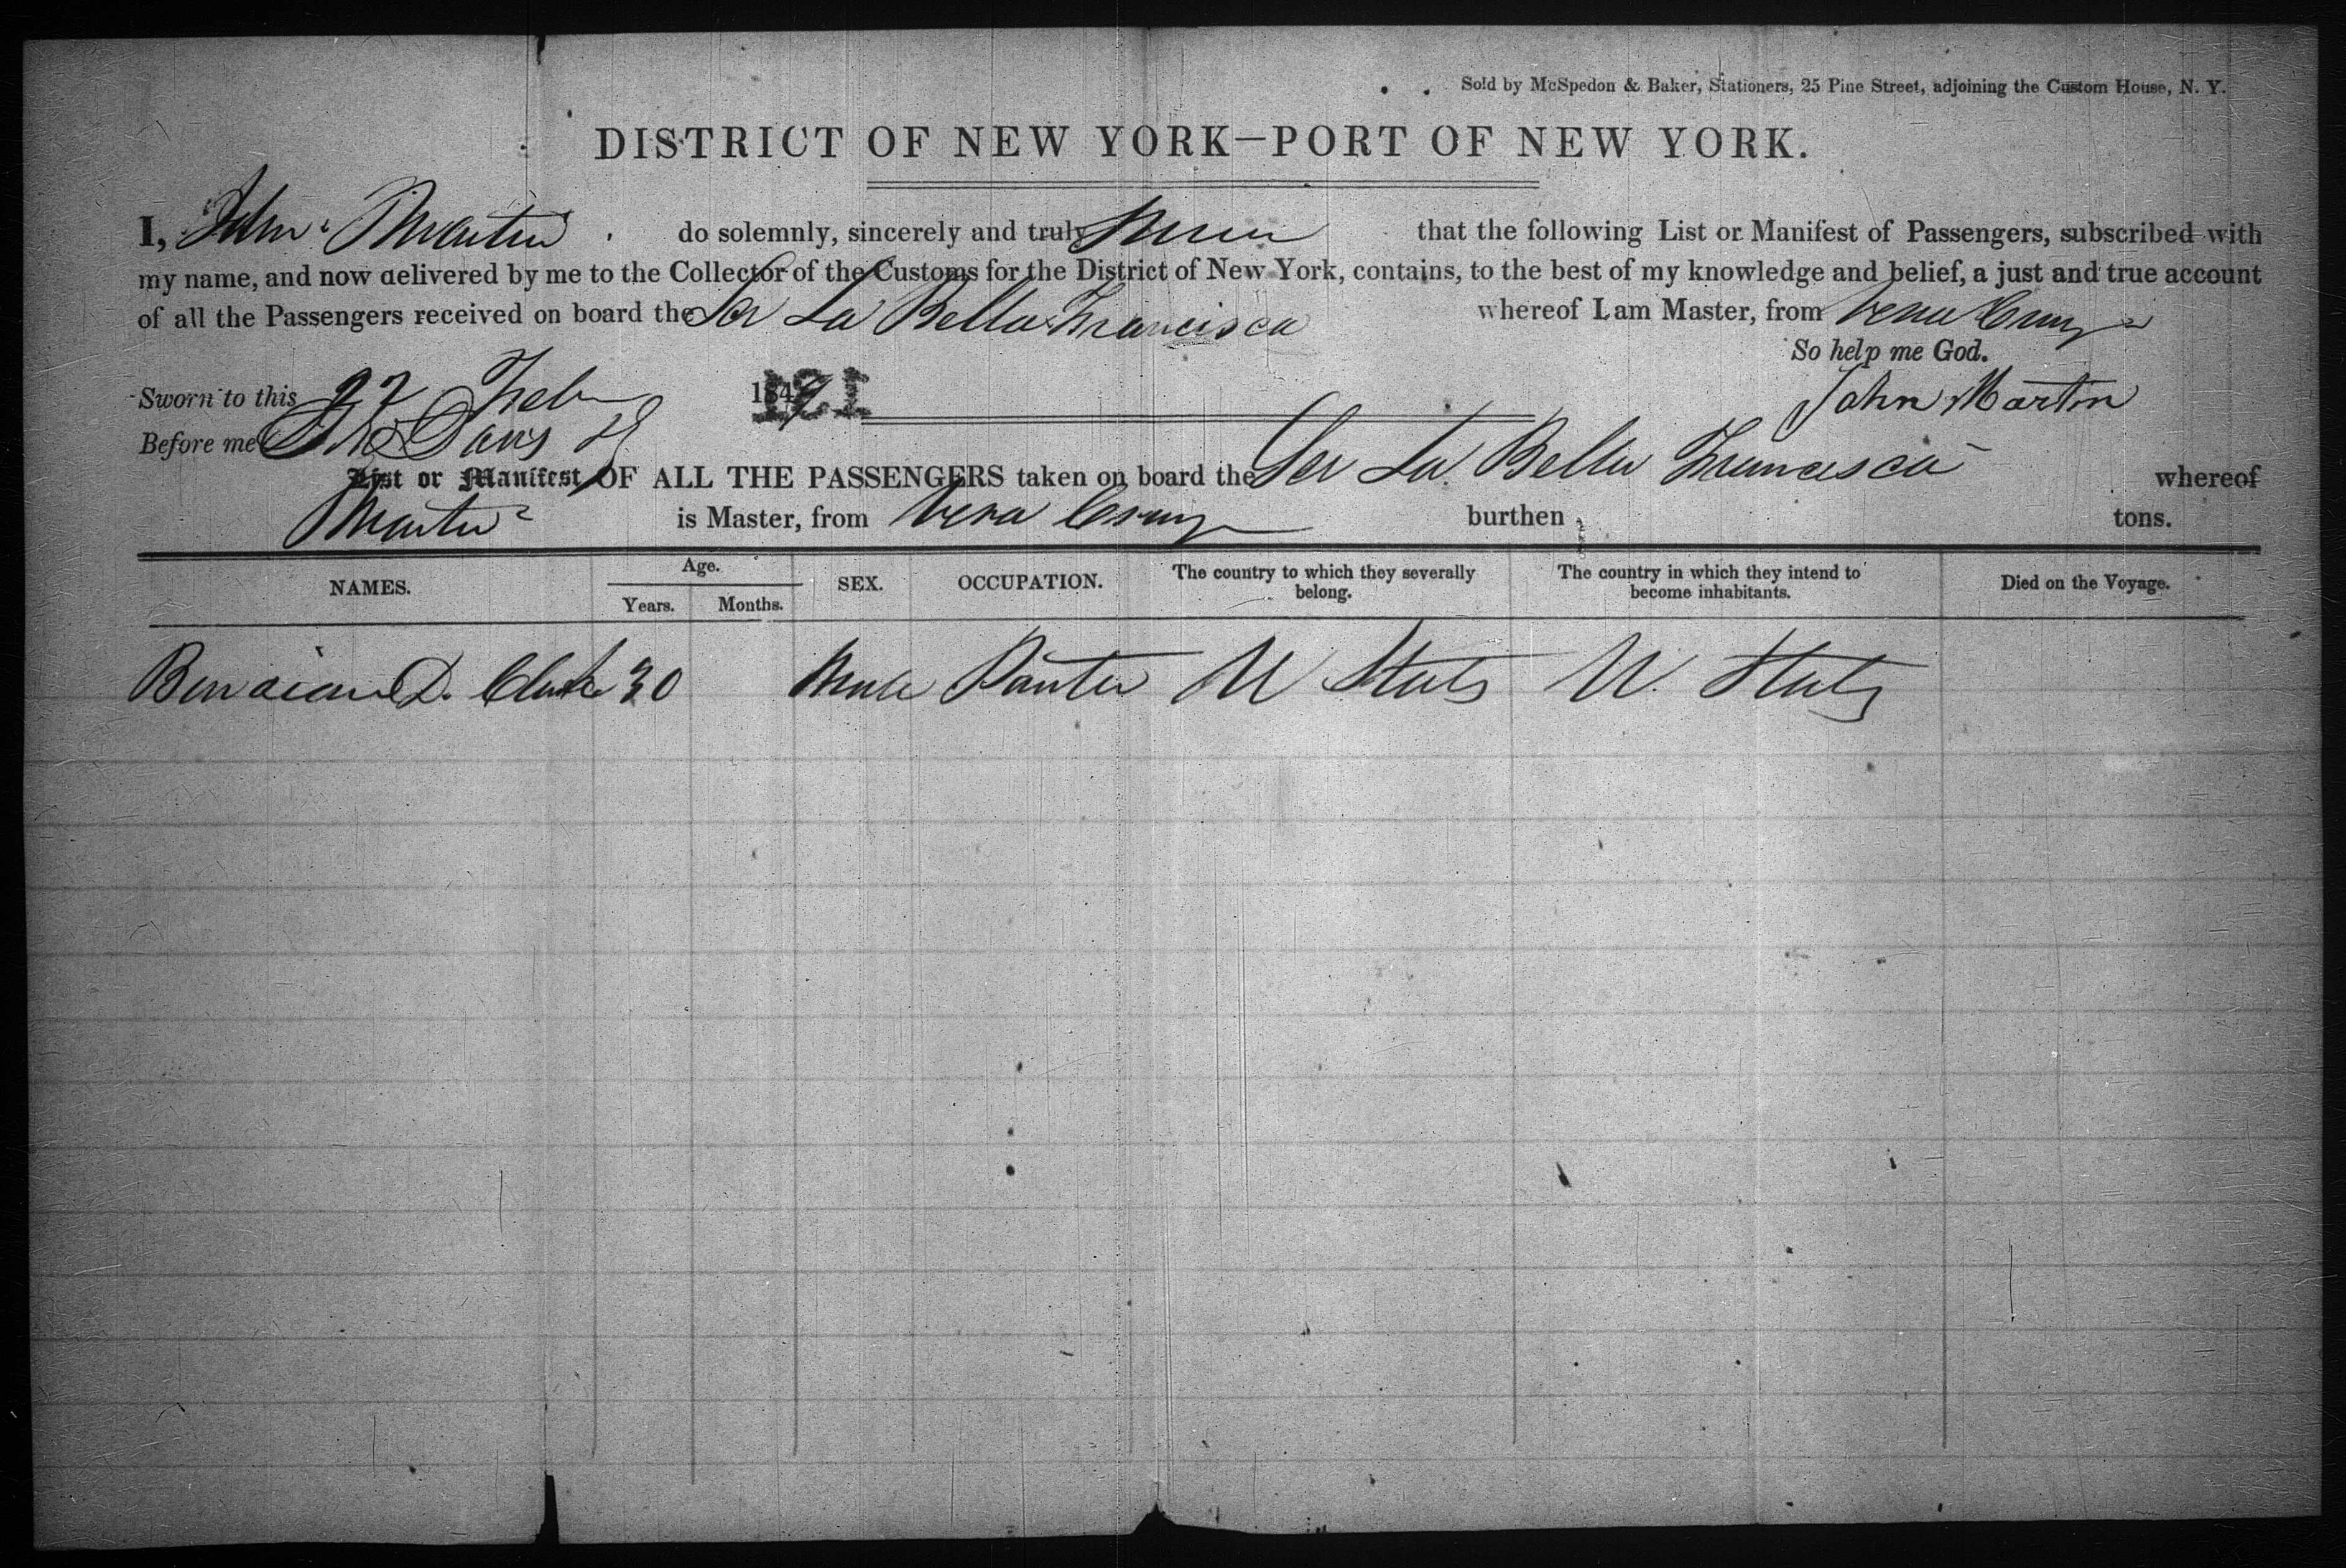 Sold by McSpedon & Baker, Stationers, 25 Pine Street, adjoining the Custom House, N. Y.
DISTRICT OF NEW YORK—PORT OF NEW YORK.
I, John Martin do solemnly, sincerely and truly swear that the following List or Manifest of Passengers, subscribed with
my name, and now delivered by me to the Collector of the Customs for the District of New York, contains, to the best of my knowledge and belief, a just and true account
of all the Passengers received on board the Scr La Bella Francisca whereof I am Master, from Vera Cruz
So help me God.
Sworn to this 27 Feb 184 121
John Martin
Before me
List or Manifest OF ALL THE PASSENGERS taken on board the Scr La Bella Francisca whereof
Martin is Master, from Vera Cruz burthen tons.
NAMES. Age. SEX. OCCUPATION. The country to which they severally belong. The country in which they intend to become inhabitants. Died on the Voyage.
Years. Months.
D. 30 Male U States U. States